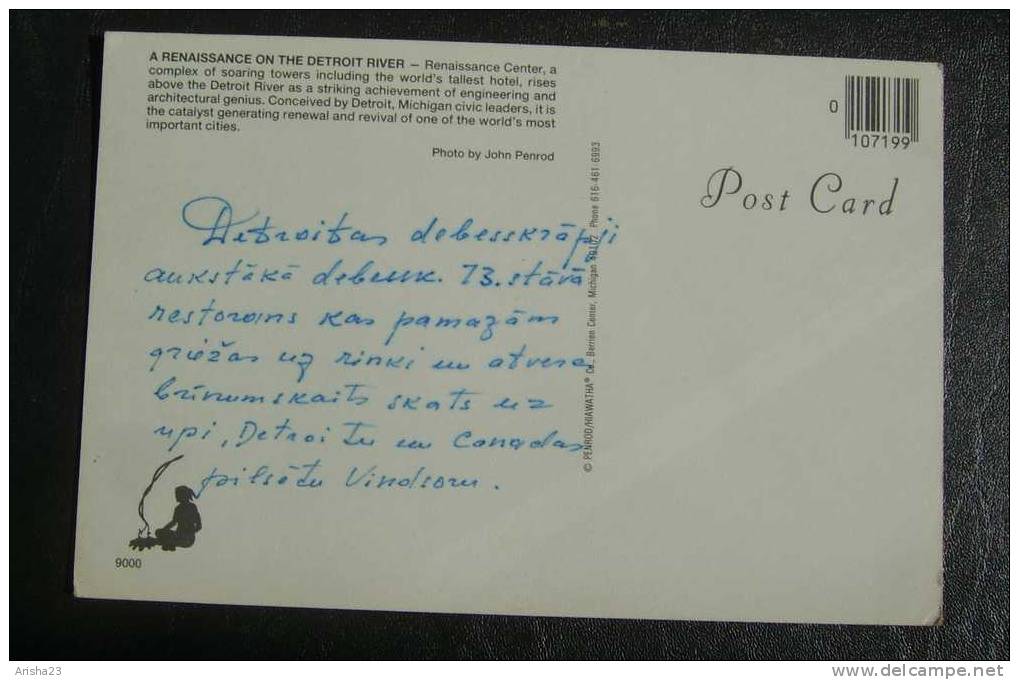 A RENAISSANCE ON THE DETROIT RIVER — Renaissance Center, a
complex of soaring towers including the world's tallest hotel, rises
above the Detroit River as a striking achievement of engineering and
architectural genius. Conceived by Detroit, Michigan civic leaders, it is
the catalyst generating renewal and revival of one of the world's most
important cities.
Photo by John Penrod
0
107199
Post Card
Detroitas debesskrāpji
aukstākā debessk. 73. stāvā
restorans kas pamazām
griežas uz rinki un atveras
brīnumskaits skats uz
upi, Detroitu un Canadas
pilsētu Vindsoru.
© PENROD/HIAWATHA® Co., Berrien Center, Michigan 49102 Phone 616-461-6993
9000
Arisha23
www.delcampe.net